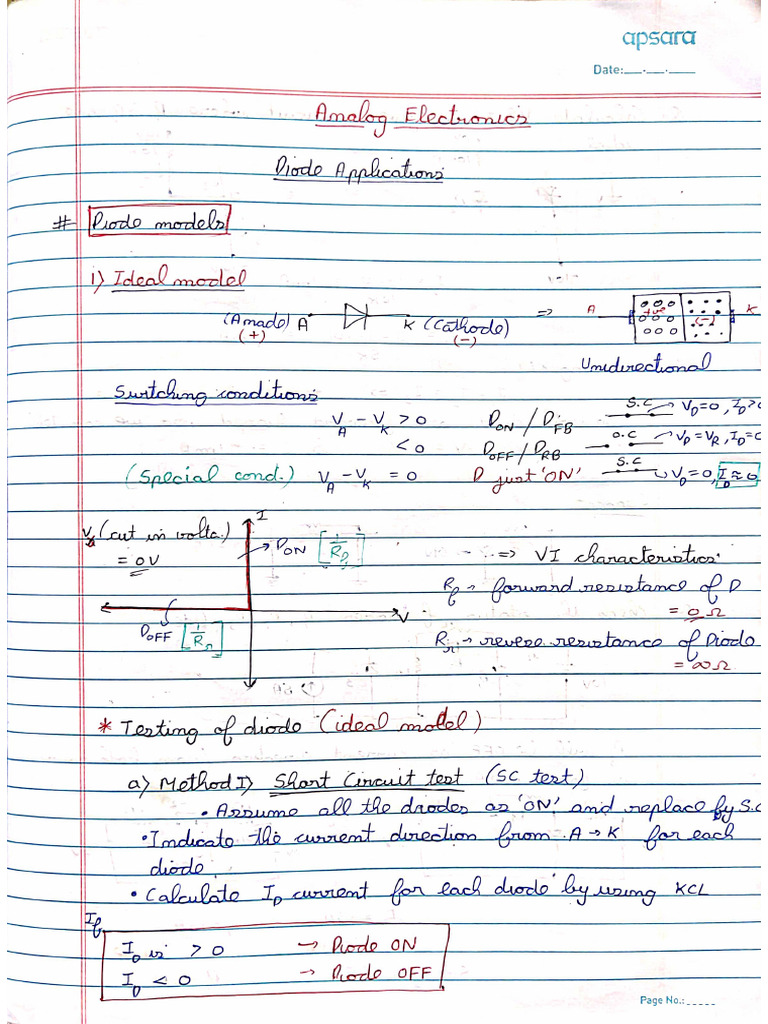 apsara
Date:__.__.__
Analog Electronics
Diode Applications
# Diode models
i) Ideal model
(Anade) A K (Cathode) => A +ve (-) K
(+) (-)
Unidirectional
Switching conditions
V_A - V_K > 0 D_ON / D_FB S.C → V_D=0, I_D>0
< 0 D_OFF / D_RB O.C → V_D=V_R, I_D=0
(Special cond.) V_A - V_K = 0 D just 'ON' S.C → V_D=0, I_D≈0
I
(cut in volta.) → D_ON [1/R_f] => VI characteristics
= 0V
R_f → forward resistance of D
= 0 Ω
V
D_OFF [1/R_r] R_r → reverse resistance of Diode
= ∞ Ω
* Testing of diode (ideal model)
a) Method I) Short Circuit test (SC test)
• Assume all the diodes as 'ON' and replace by S.C
• Indicate the current direction from A → K for each
diode.
• Calculate I_D current for each diode by using KCL
If
I_D is > 0 → Diode ON
I_D < 0 → Diode OFF
Page No.:_____